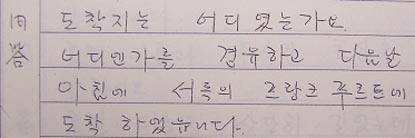 問 도착지는 어디 였는가요.
答 어디인가를 경유하고 다음날
아침에 서륵의 프랑크 푸르트에
도착 하였읍니다.